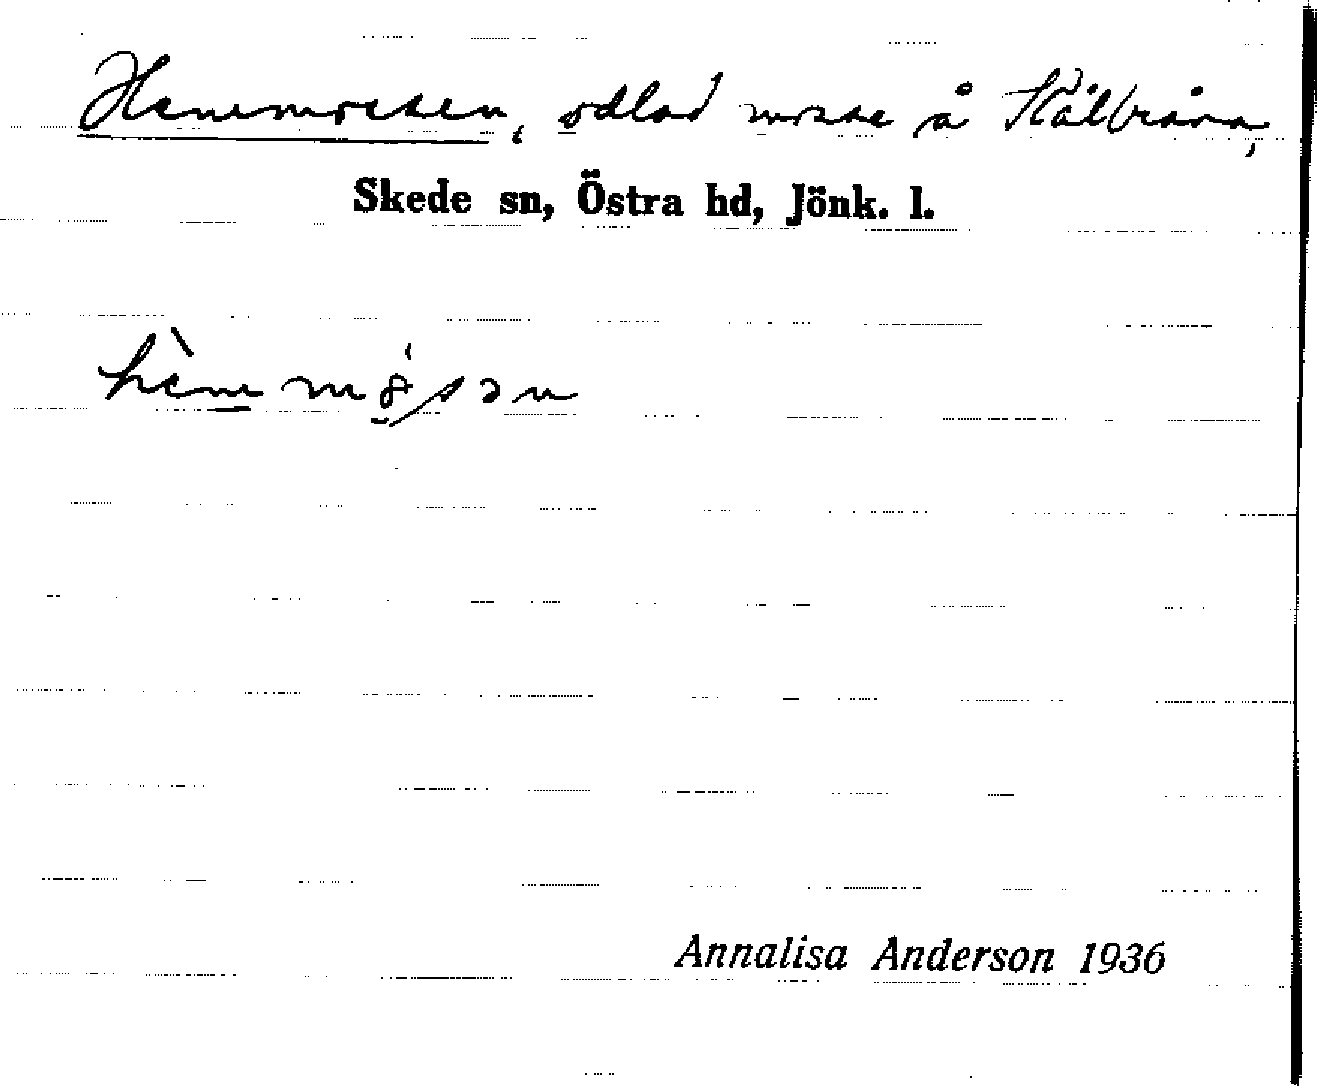 Hemmossen, odlad mosse å Stålbråna,
Skede sn, Östra hd, Jönk. l.
Annalisa Anderson 1936